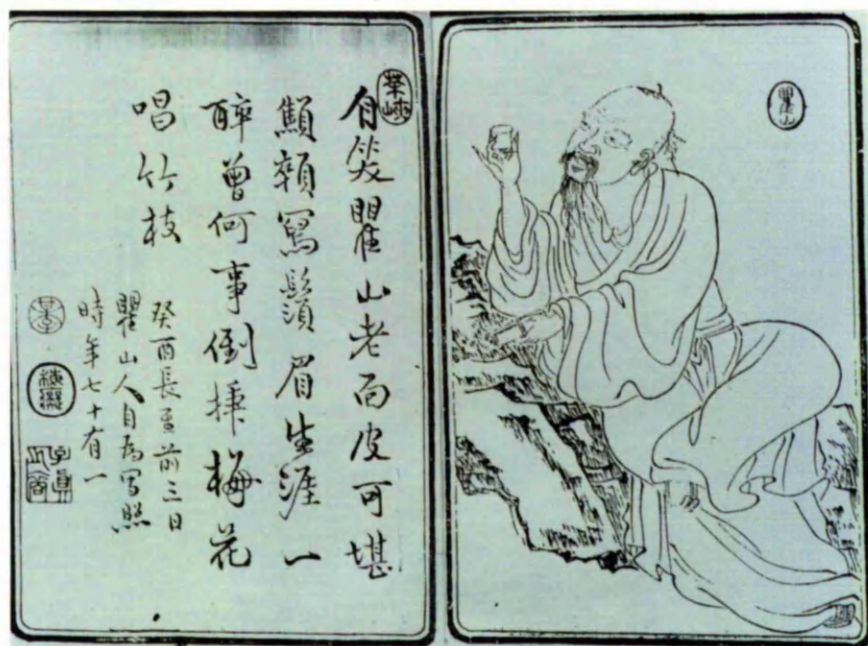 瞿山
自笑瞿山老面皮可堪
顦顇寫鬚眉生涯一
醉曾何事倒揷梅花
唱竹枝
癸酉長至前三日
瞿山人自為寫照
時年七十有一